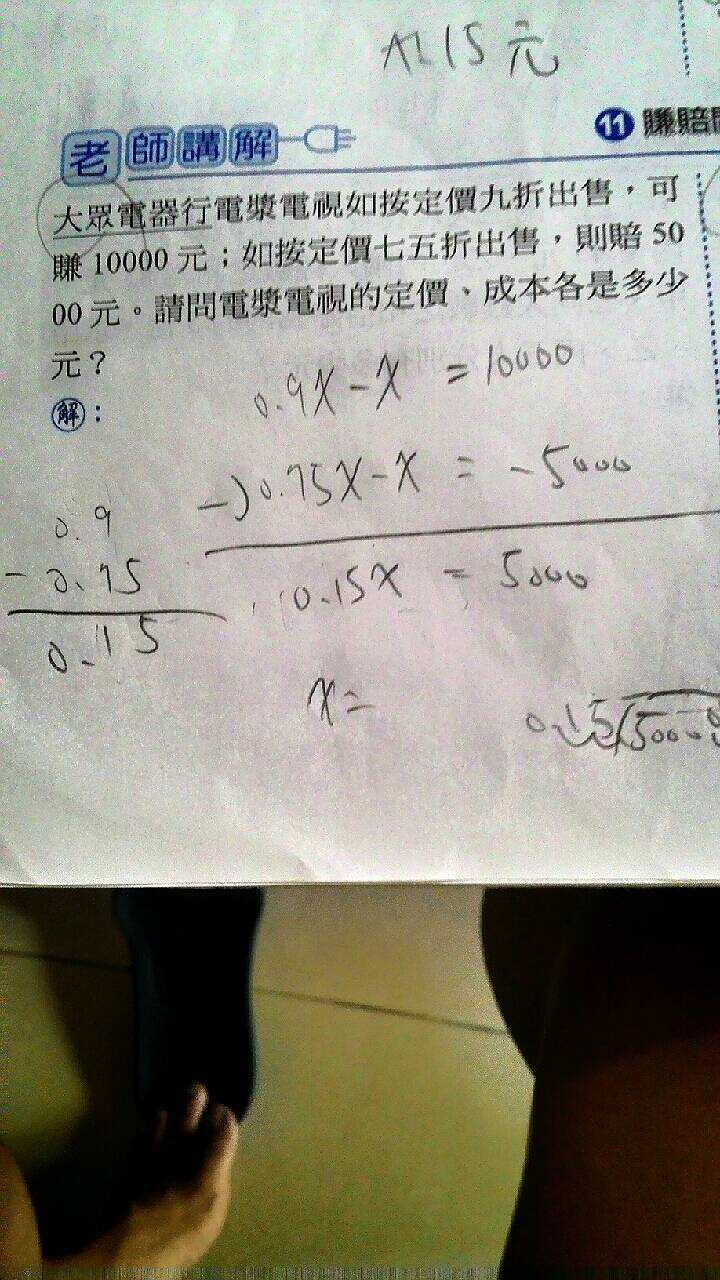 15元
11 賺賠
老師講解
大眾電器行電漿電視如按定價九折出售，可
賺 10000 元；如按定價七五折出售，則賠 50
00 元。請問電漿電視的定價、成本各是多少
元？
解：
0.9x-x = 10000
-) 0.75x-x = -5000
0.15x = 5000
x=
0.9
- 0.75
0.15
0.15 5000